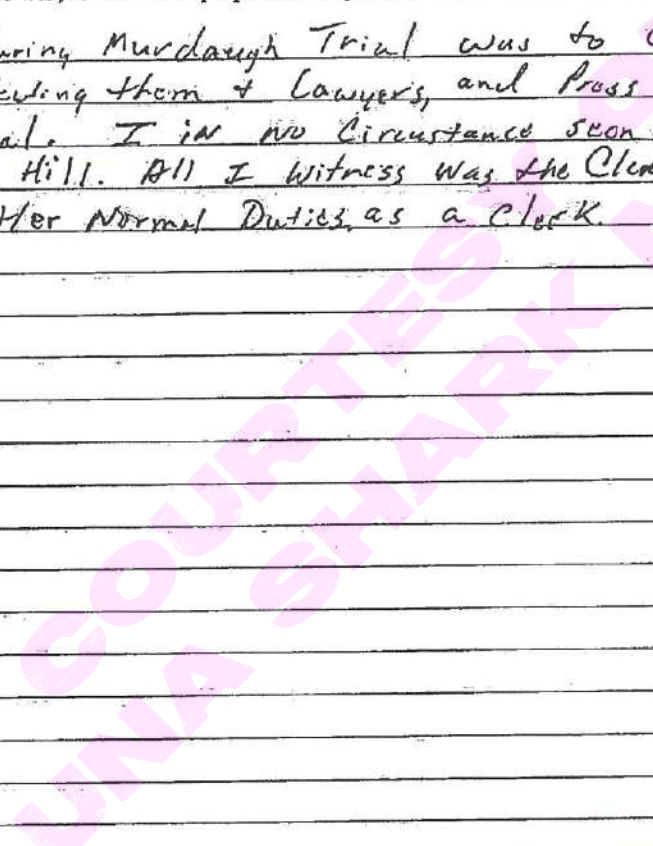 Murdaugh Trial was to
them & Lawyers, and Press
I in no Circustance seen
Hill. All I witness was the
Her Normal Duties, as a Clerk.
COURTESY
UNA SHARK